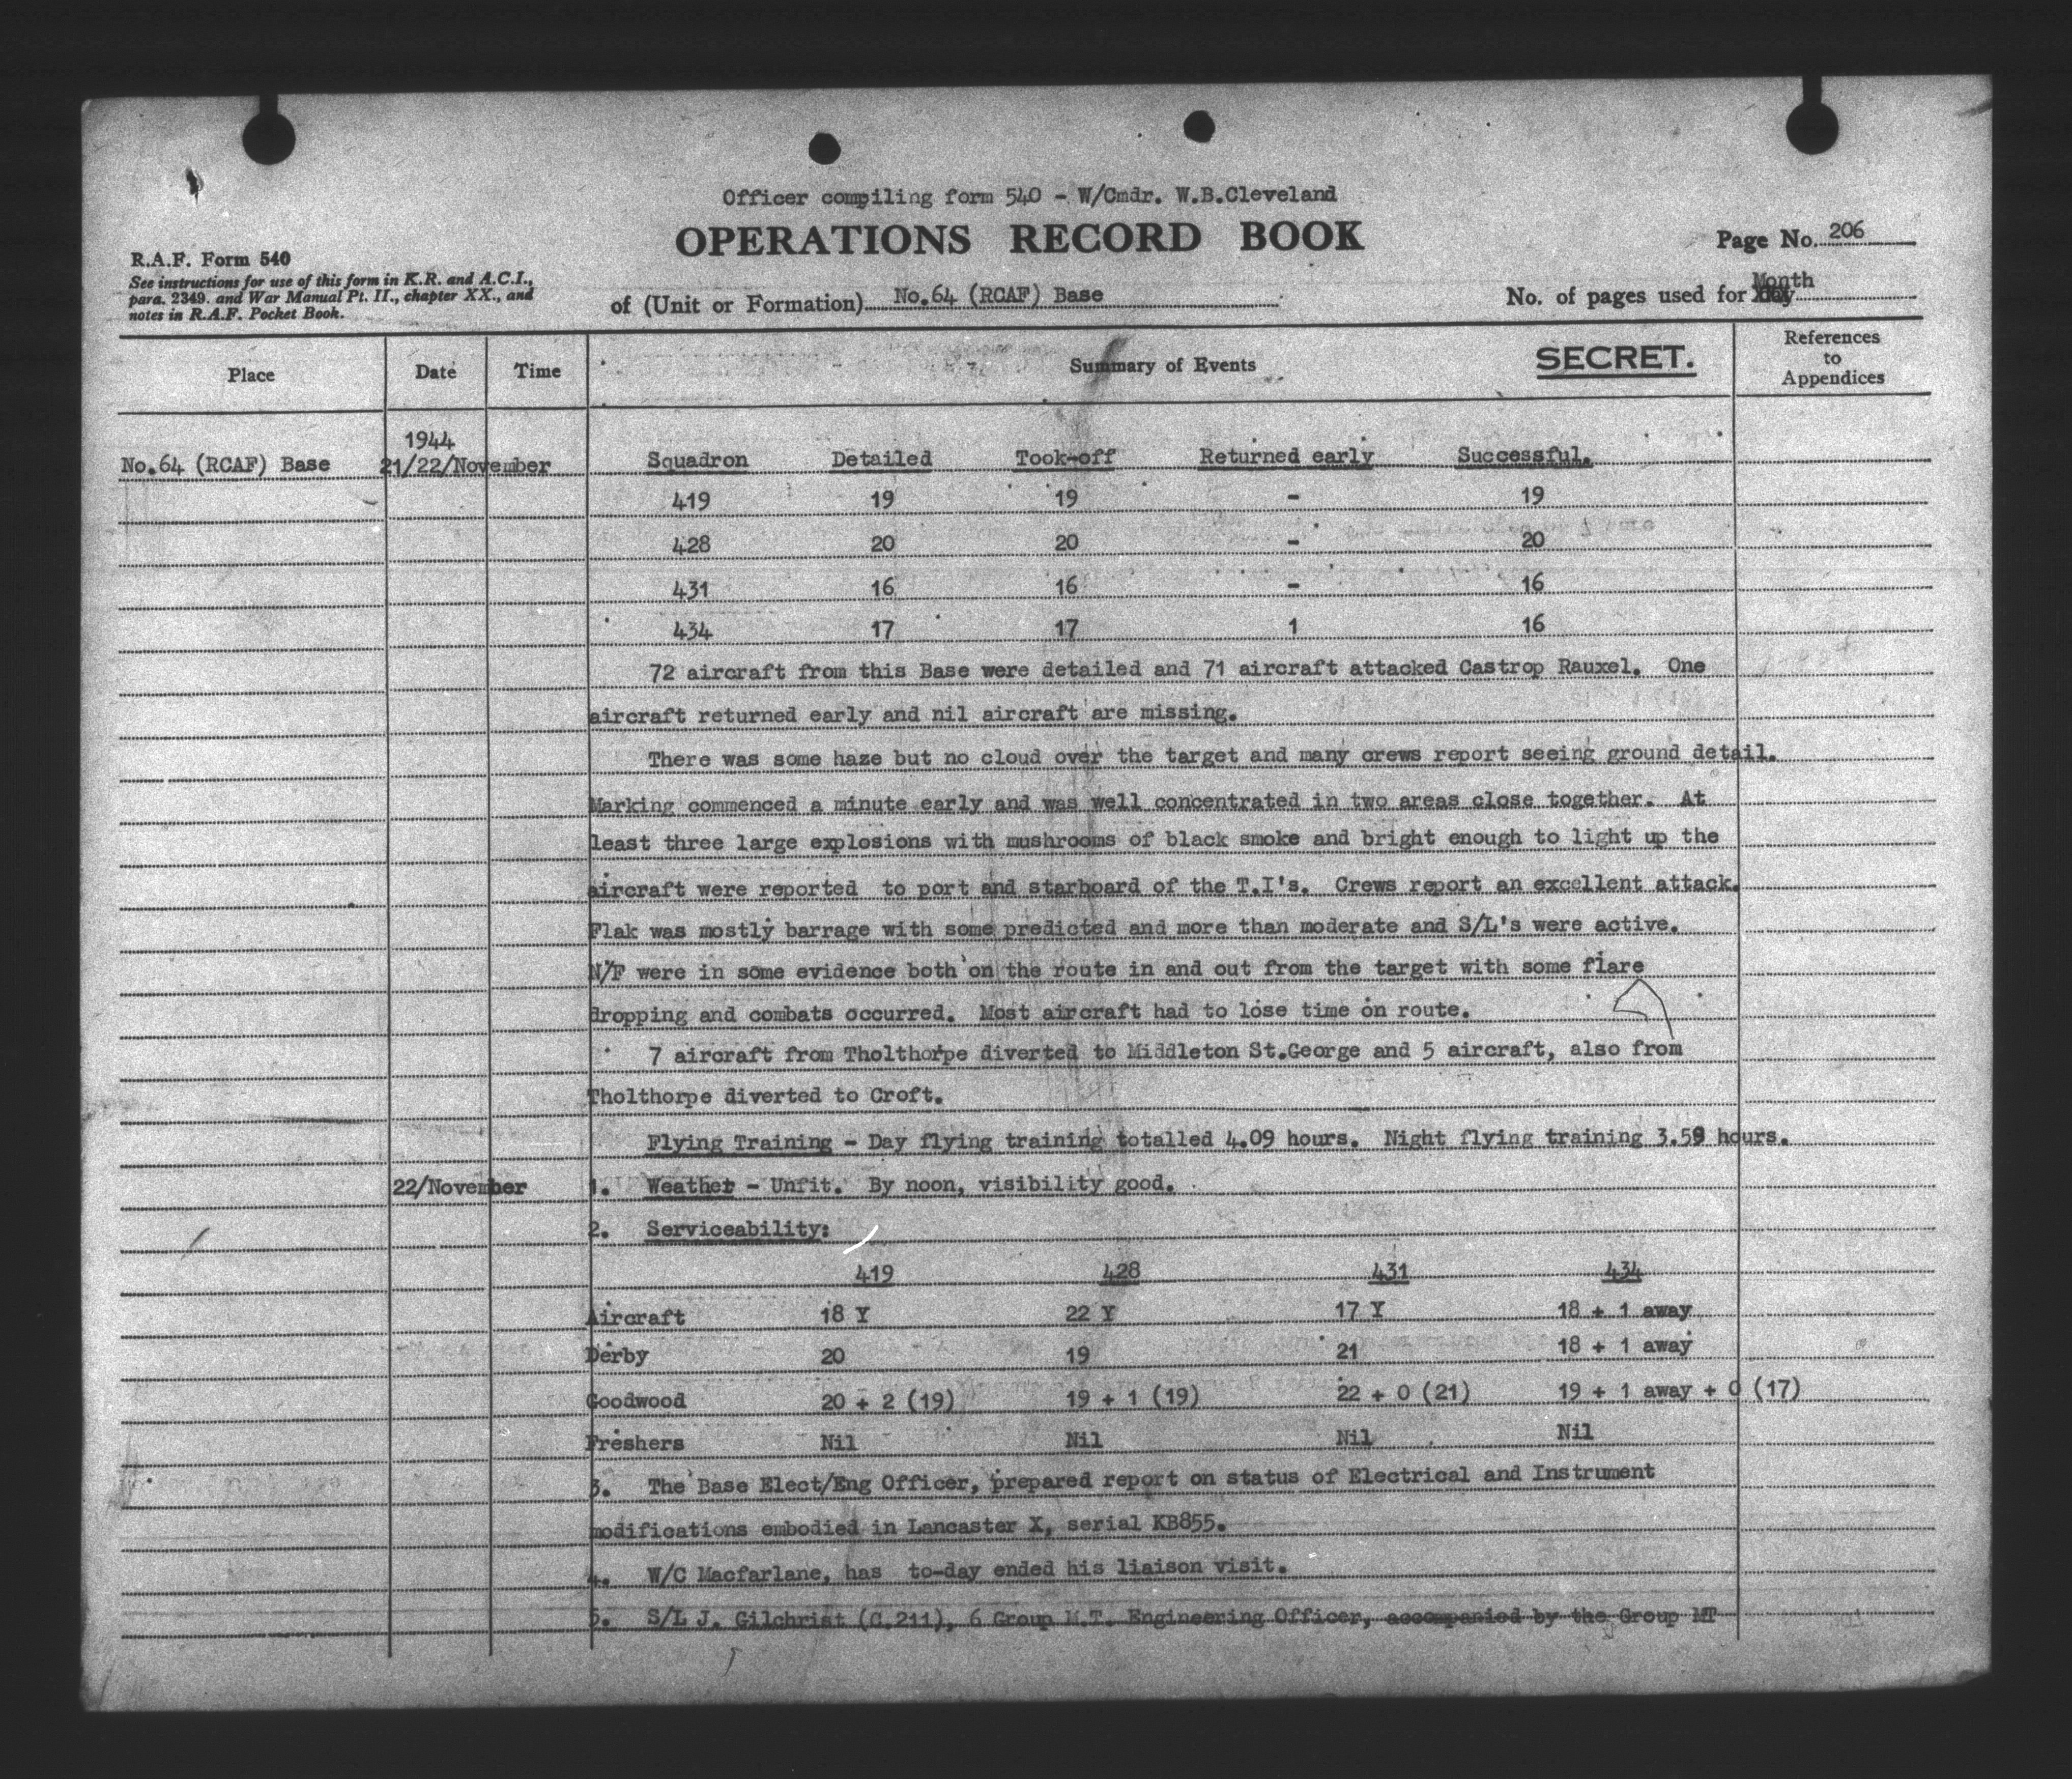 Officer compiling form 540 - W/Cmdr. W.B.Cleveland
OPERATIONS RECORD BOOK
R.A.F. Form 540
See instructions for use of this form in K.R. and A.C.I.,
para. 2349. and War Manual Pt. II., chapter XX., and
notes in R.A.F. Pocket Book.
of (Unit or Formation) No.64 (RCAF) Base
Page No. 206
No. of pages used for Month
Place Date Time Summary of Events SECRET. References to Appendices
1944
No.64 (RCAF) Base 21/22/November Squadron Detailed Took-off Returned early Successful.
419 19 19 - 19
428 20 20 - 20
431 16 16 - 16
434 17 17 1 16
72 aircraft from this Base were detailed and 71 aircraft attacked Castrop Rauxel. One
aircraft returned early and nil aircraft are missing.
There was some haze but no cloud over the target and many crews report seeing ground detail.
Marking commenced a minute early and was well concentrated in two areas close together. At
least three large explosions with mushrooms of black smoke and bright enough to light up the
aircraft were reported to port and starboard of the T.I's. Crews report an excellent attack.
Flak was mostly barrage with some predicted and more than moderate and S/L's were active.
N/F were in some evidence both on the route in and out from the target with some flare
dropping and combats occurred. Most aircraft had to lose time on route.
7 aircraft from Tholthorpe diverted to Middleton St.George and 5 aircraft, also from
Tholthorpe diverted to Croft.
Flying Training - Day flying training totalled 4.09 hours. Night flying training 3.59 hours.
22/November 1. Weather - Unfit. By noon, visibility good.
2. Serviceability:
419 428 431 434
Aircraft 18 Y 22 Y 17 Y 18 + 1 away
Derby 20 19 21 18 + 1 away
Goodwood 20 + 2 (19) 19 + 1 (19) 22 + 0 (21) 19 + 1 away + 0 (17)
Freshers Nil Nil Nil Nil
3. The Base Elect/Eng Officer, prepared report on status of Electrical and Instrument
modifications embodied in Lancaster X, serial KB855.
4. W/C Macfarlane, has to-day ended his liaison visit.
5. S/L J. Gilchrist (C.211), 6 Group M.T. Engineering Officer, accompanied by the Group MT